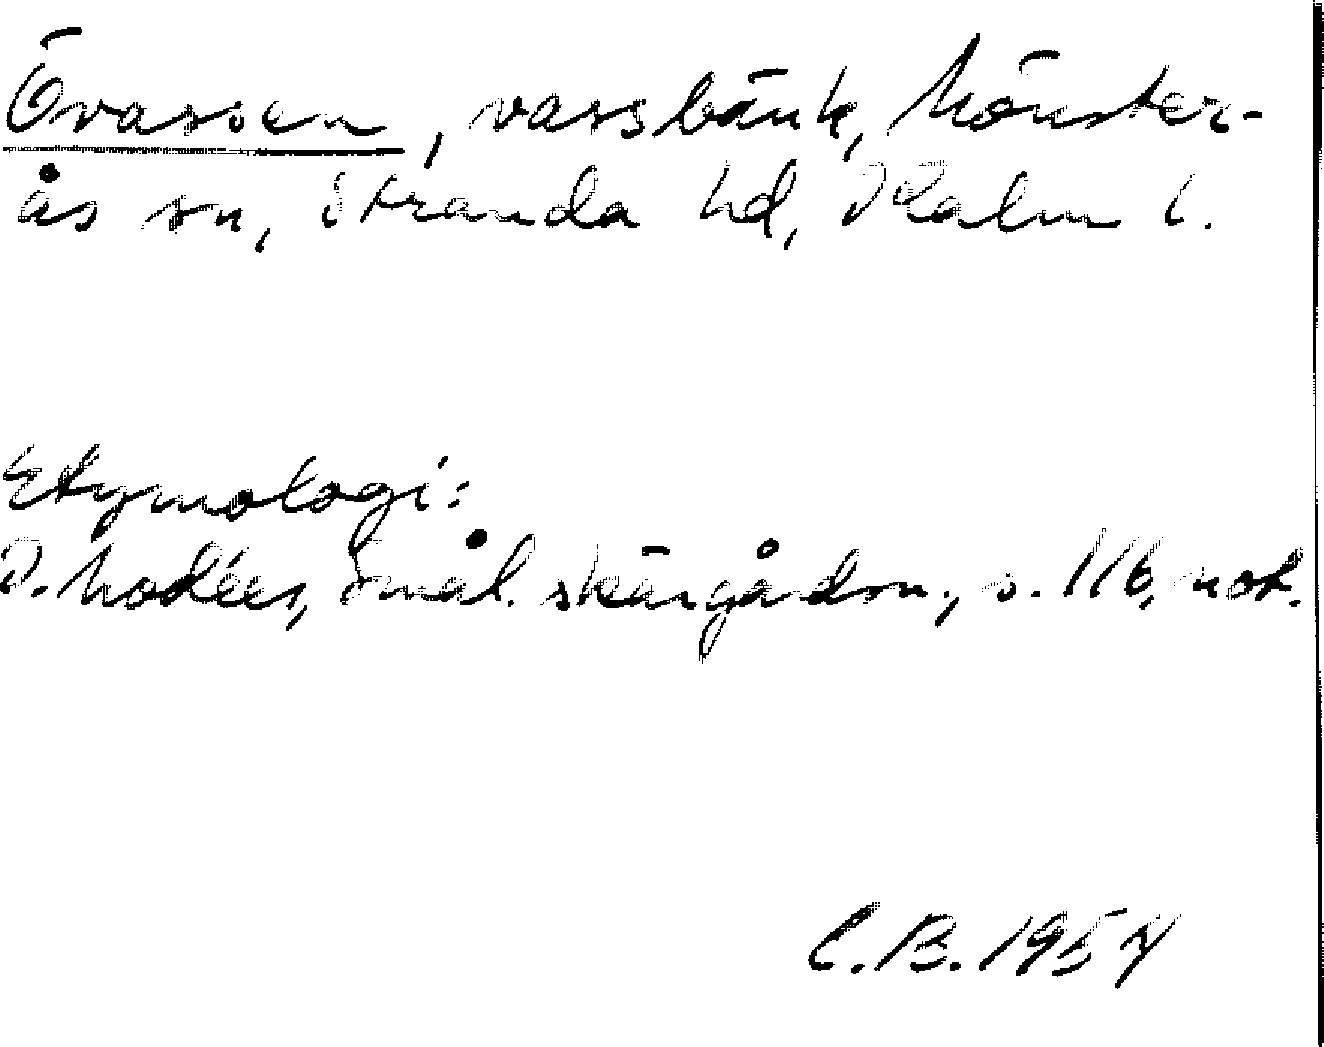 Övassen, vassbänk, Mönster-
ås sn, Stranda hd, Kalm l.
Etymologi:
I. Modéer, Smål. skärgårdsn., s. 116, not.
C.B. 1957